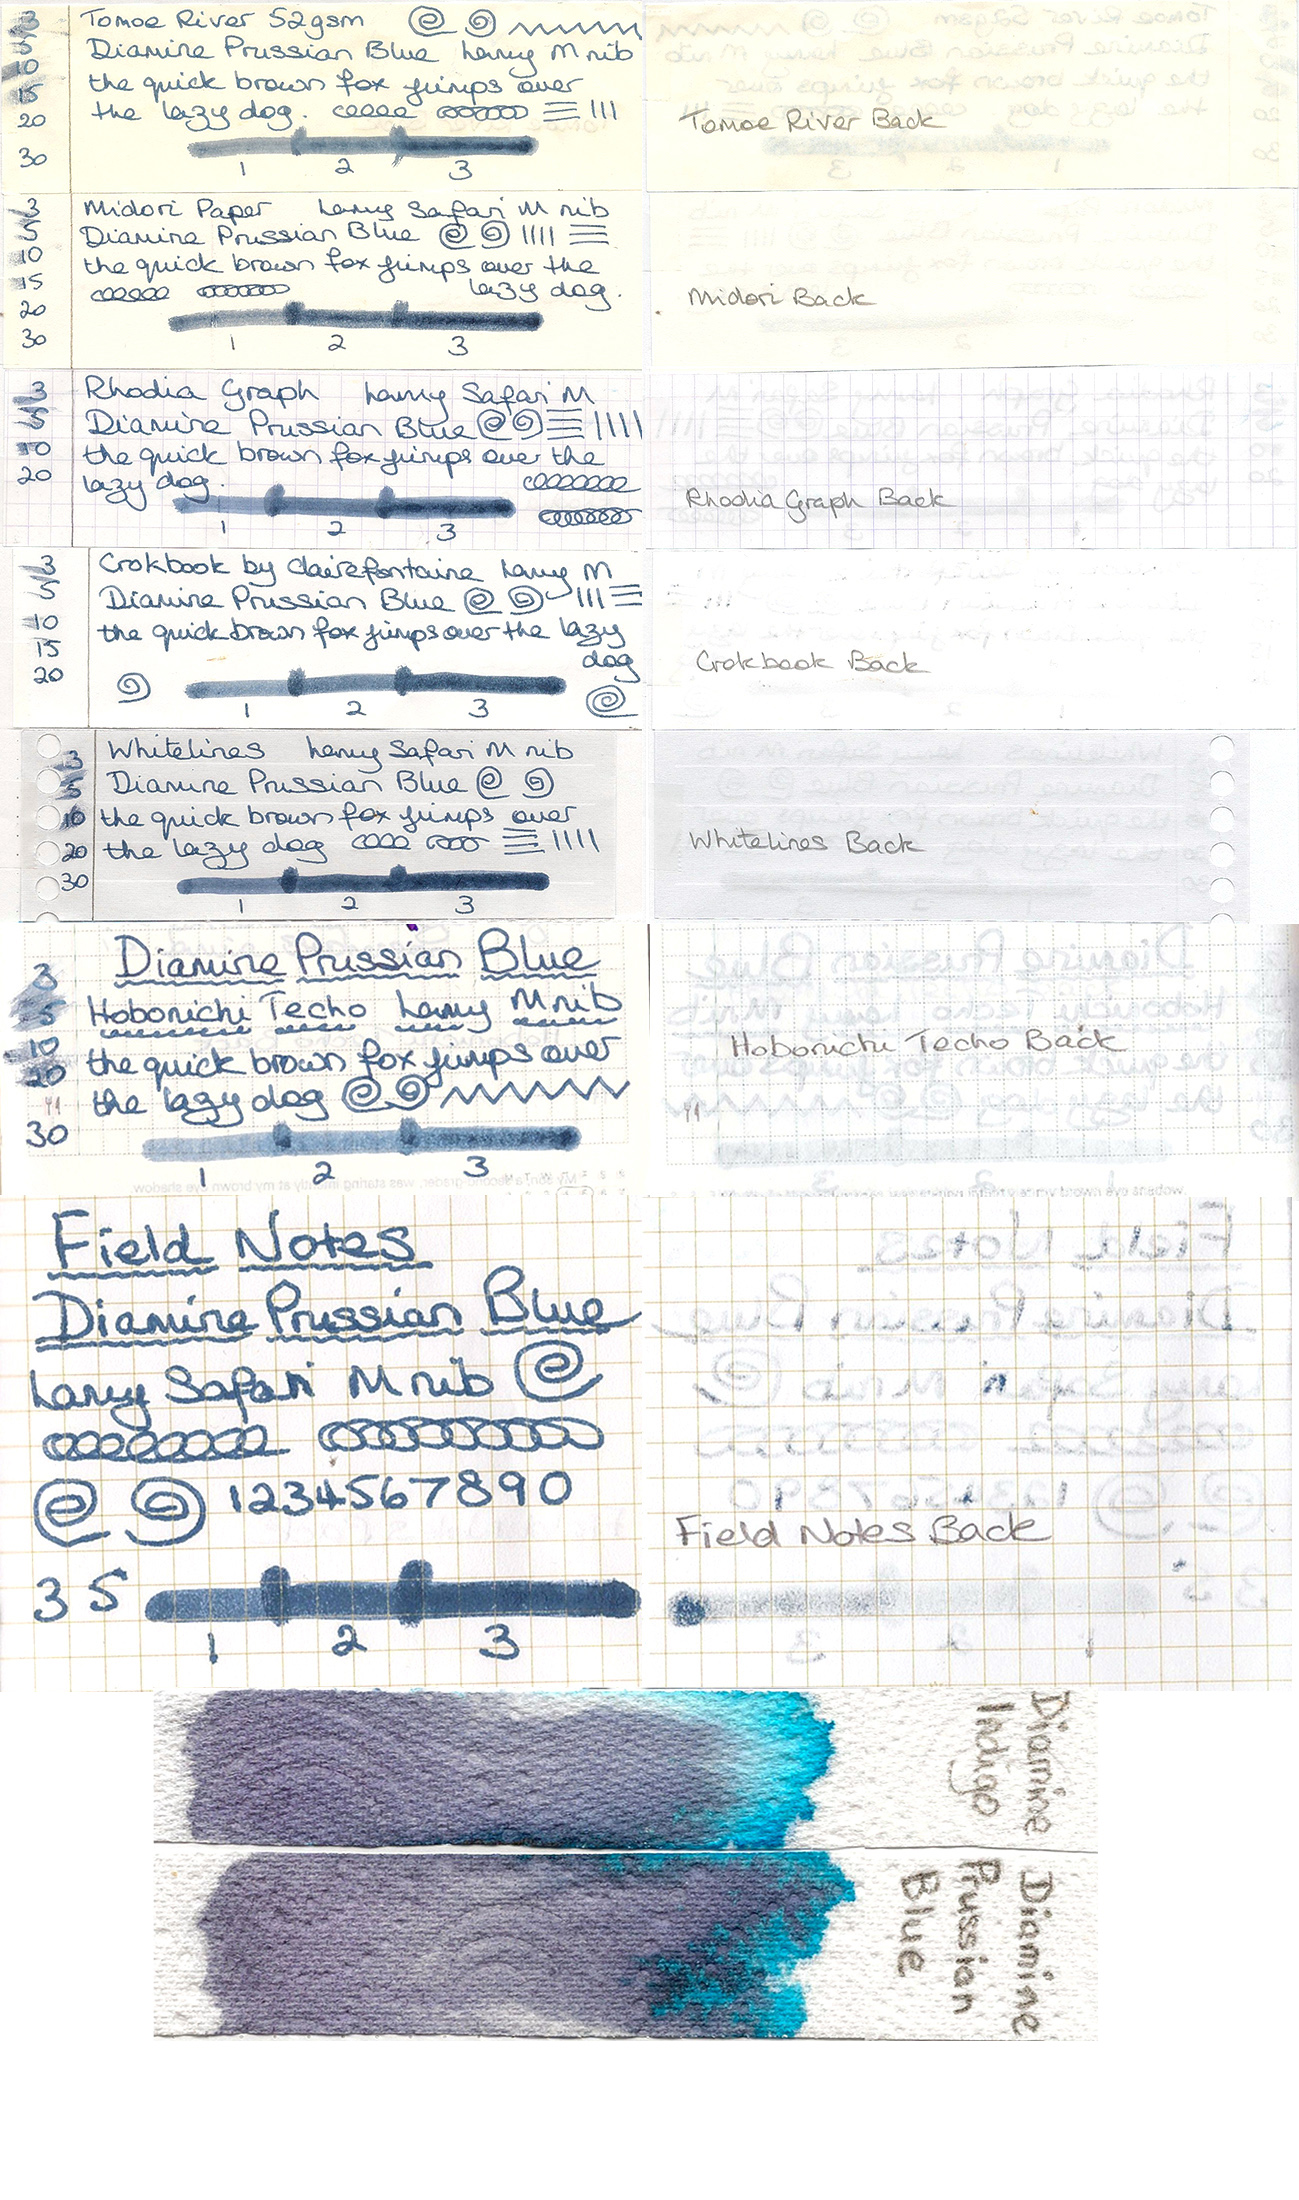 3
5
10
15
20
30
Tomoe River 52gsm
Diamine Prussian Blue Lamy M nib
the quick brown fox jumps over
the lazy dog.
1 2 3
Tomoe River Back
3
5
10
15
20
30
Midori Paper Lamy Safari M nib
Diamine Prussian Blue
the quick brown fox jumps over the
lazy dog.
1 2 3
Midori Back
3
5
10
20
Rhodia Graph Lamy Safari M
Diamine Prussian Blue
the quick brown fox jumps over the
lazy dog.
1 2 3
Rhodia Graph Back
3
5
10
15
20
Crokbook by Clairefontaine Lamy M
Diamine Prussian Blue
the quick brown fox jumps over the lazy
dog
1 2 3
Crokbook Back
3
5
10
20
30
Whitelines Lamy Safari M nib
Diamine Prussian Blue
the quick brown fox jumps over
the lazy dog
1 2 3
Whitelines Back
3
5
10
20
30
Diamine Prussian Blue
Hobonichi Techo Lamy M nib
the quick brown fox jumps over
the lazy dog
1 2 3
Hobonichi Techo Back
Field Notes
Diamine Prussian Blue
Lamy Safari M nib
1234567890
3 5
1 2 3
Field Notes Back
Diamine
Indigo
Diamine
Prussian
Blue